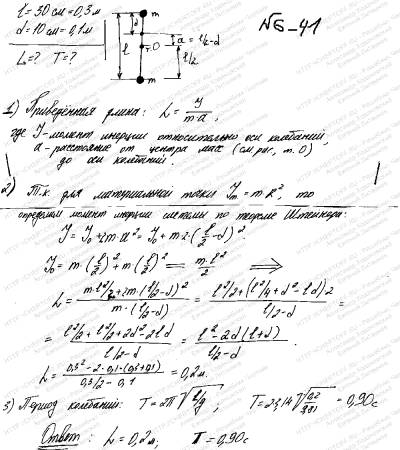 l = 30 см = 0,3 м
d = 10 см = 0,1 м
L = ? T = ?
m
d
l
т. O
a = l/2 - d
l/2
m
№6-41
1) Приведённая длина: L = J/ma,
где J - момент инерции относительно оси колебаний,
a - расстояние от центра масс (см. рис, т. O)
до оси колебаний.
2) Т.к. для материальной точки Jm = mR², то
определим момент инерции системы по теореме Штейнера:
J = J₀ + 2ma² = J₀ + m·2·(l/2 - d)².
J₀ = m·(l/2)² + m(l/2)² = m·l²/2 ⟹
L = (m·l²/2 + 2m·(l/2 - d)²)/(m·(l/2 - d)) = (l²/2 + (l²/4 + d² - ld)2)/(l/2 - d) =
= (l²/2 + l²/2 + 2d² - 2ld)/(l/2 - d) = (l² - 2d(l+d))/(l/2 - d).
L = (0,3² - 2·0,1·(0,3+0,1))/(0,3/2 - 0,1) = 0,2 м.
3) Период колебаний: T = 2π√(L/g); T = 2·3,14√(0,2/9,81) = 0,90 с
Ответ: L = 0,2 м; T = 0,90 с